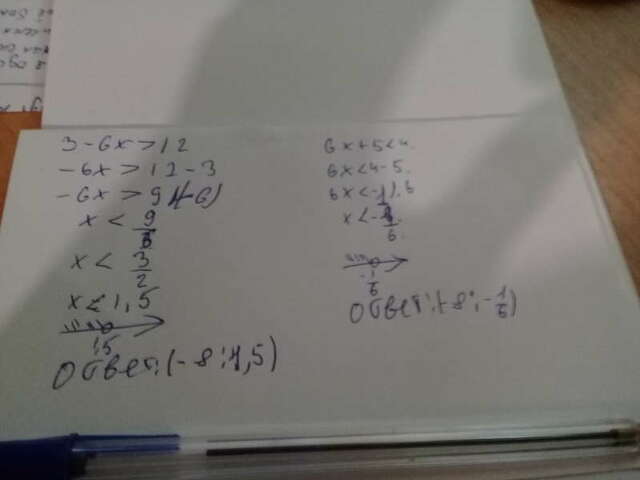 3-6x>12
-6x>12-3
-6x>9 |(-6)
x<9/6
x<3/2
x<1,5
1,5
Ответ:(-8;1,5)
6x+5<4.
6x<4-5.
6x<-1|:6
x<-1/6.
-1/6
Ответ:(-8;-1/6)